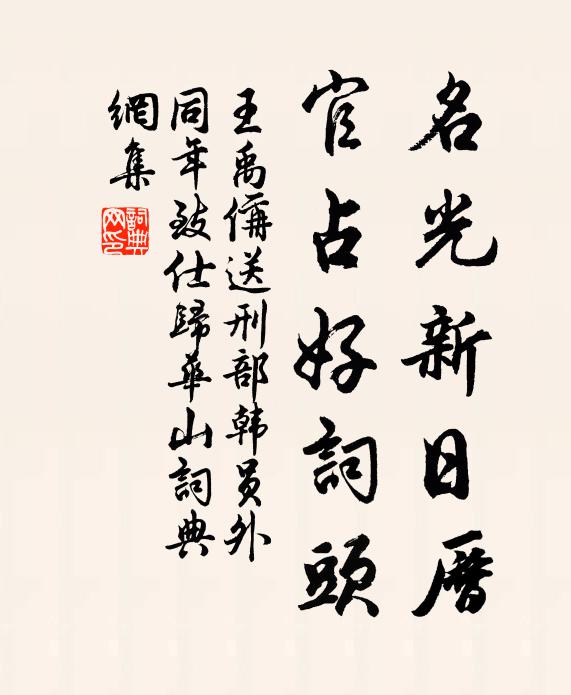 名光新日曆
官占好詞頭
王禹偁送刑部韩員外
同年致仕歸華山詞典
網集
詞典网印